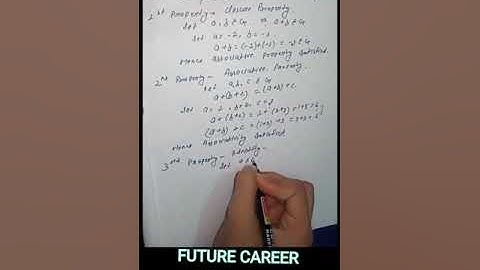 1st Property - Closure Property.
Let a, b ∈ G ⇒ a+b ∈ G
Let a = -2, b = -1
a+b = (-2)+(-1) = -3 ∈ G
Hence Associative Property Satisfied.
2nd Property - Associative Property.
Let a, b, c ∈ G
a+(b+c) = (a+b)+c.
Let
Hence Associativity Satisfied.
3rd Property - Identity -
Let a ∈ G
FUTURE CAREER